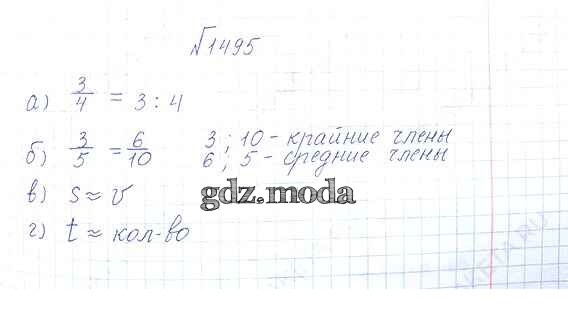 √1495
а) 3/4 = 3 : 4
б) 3/5 = 6/10 3 ; 10 - крайние члены
6 ; 5 - средние члены
в) s ≈ v
gdz.moda
г) t ≈ кол-во